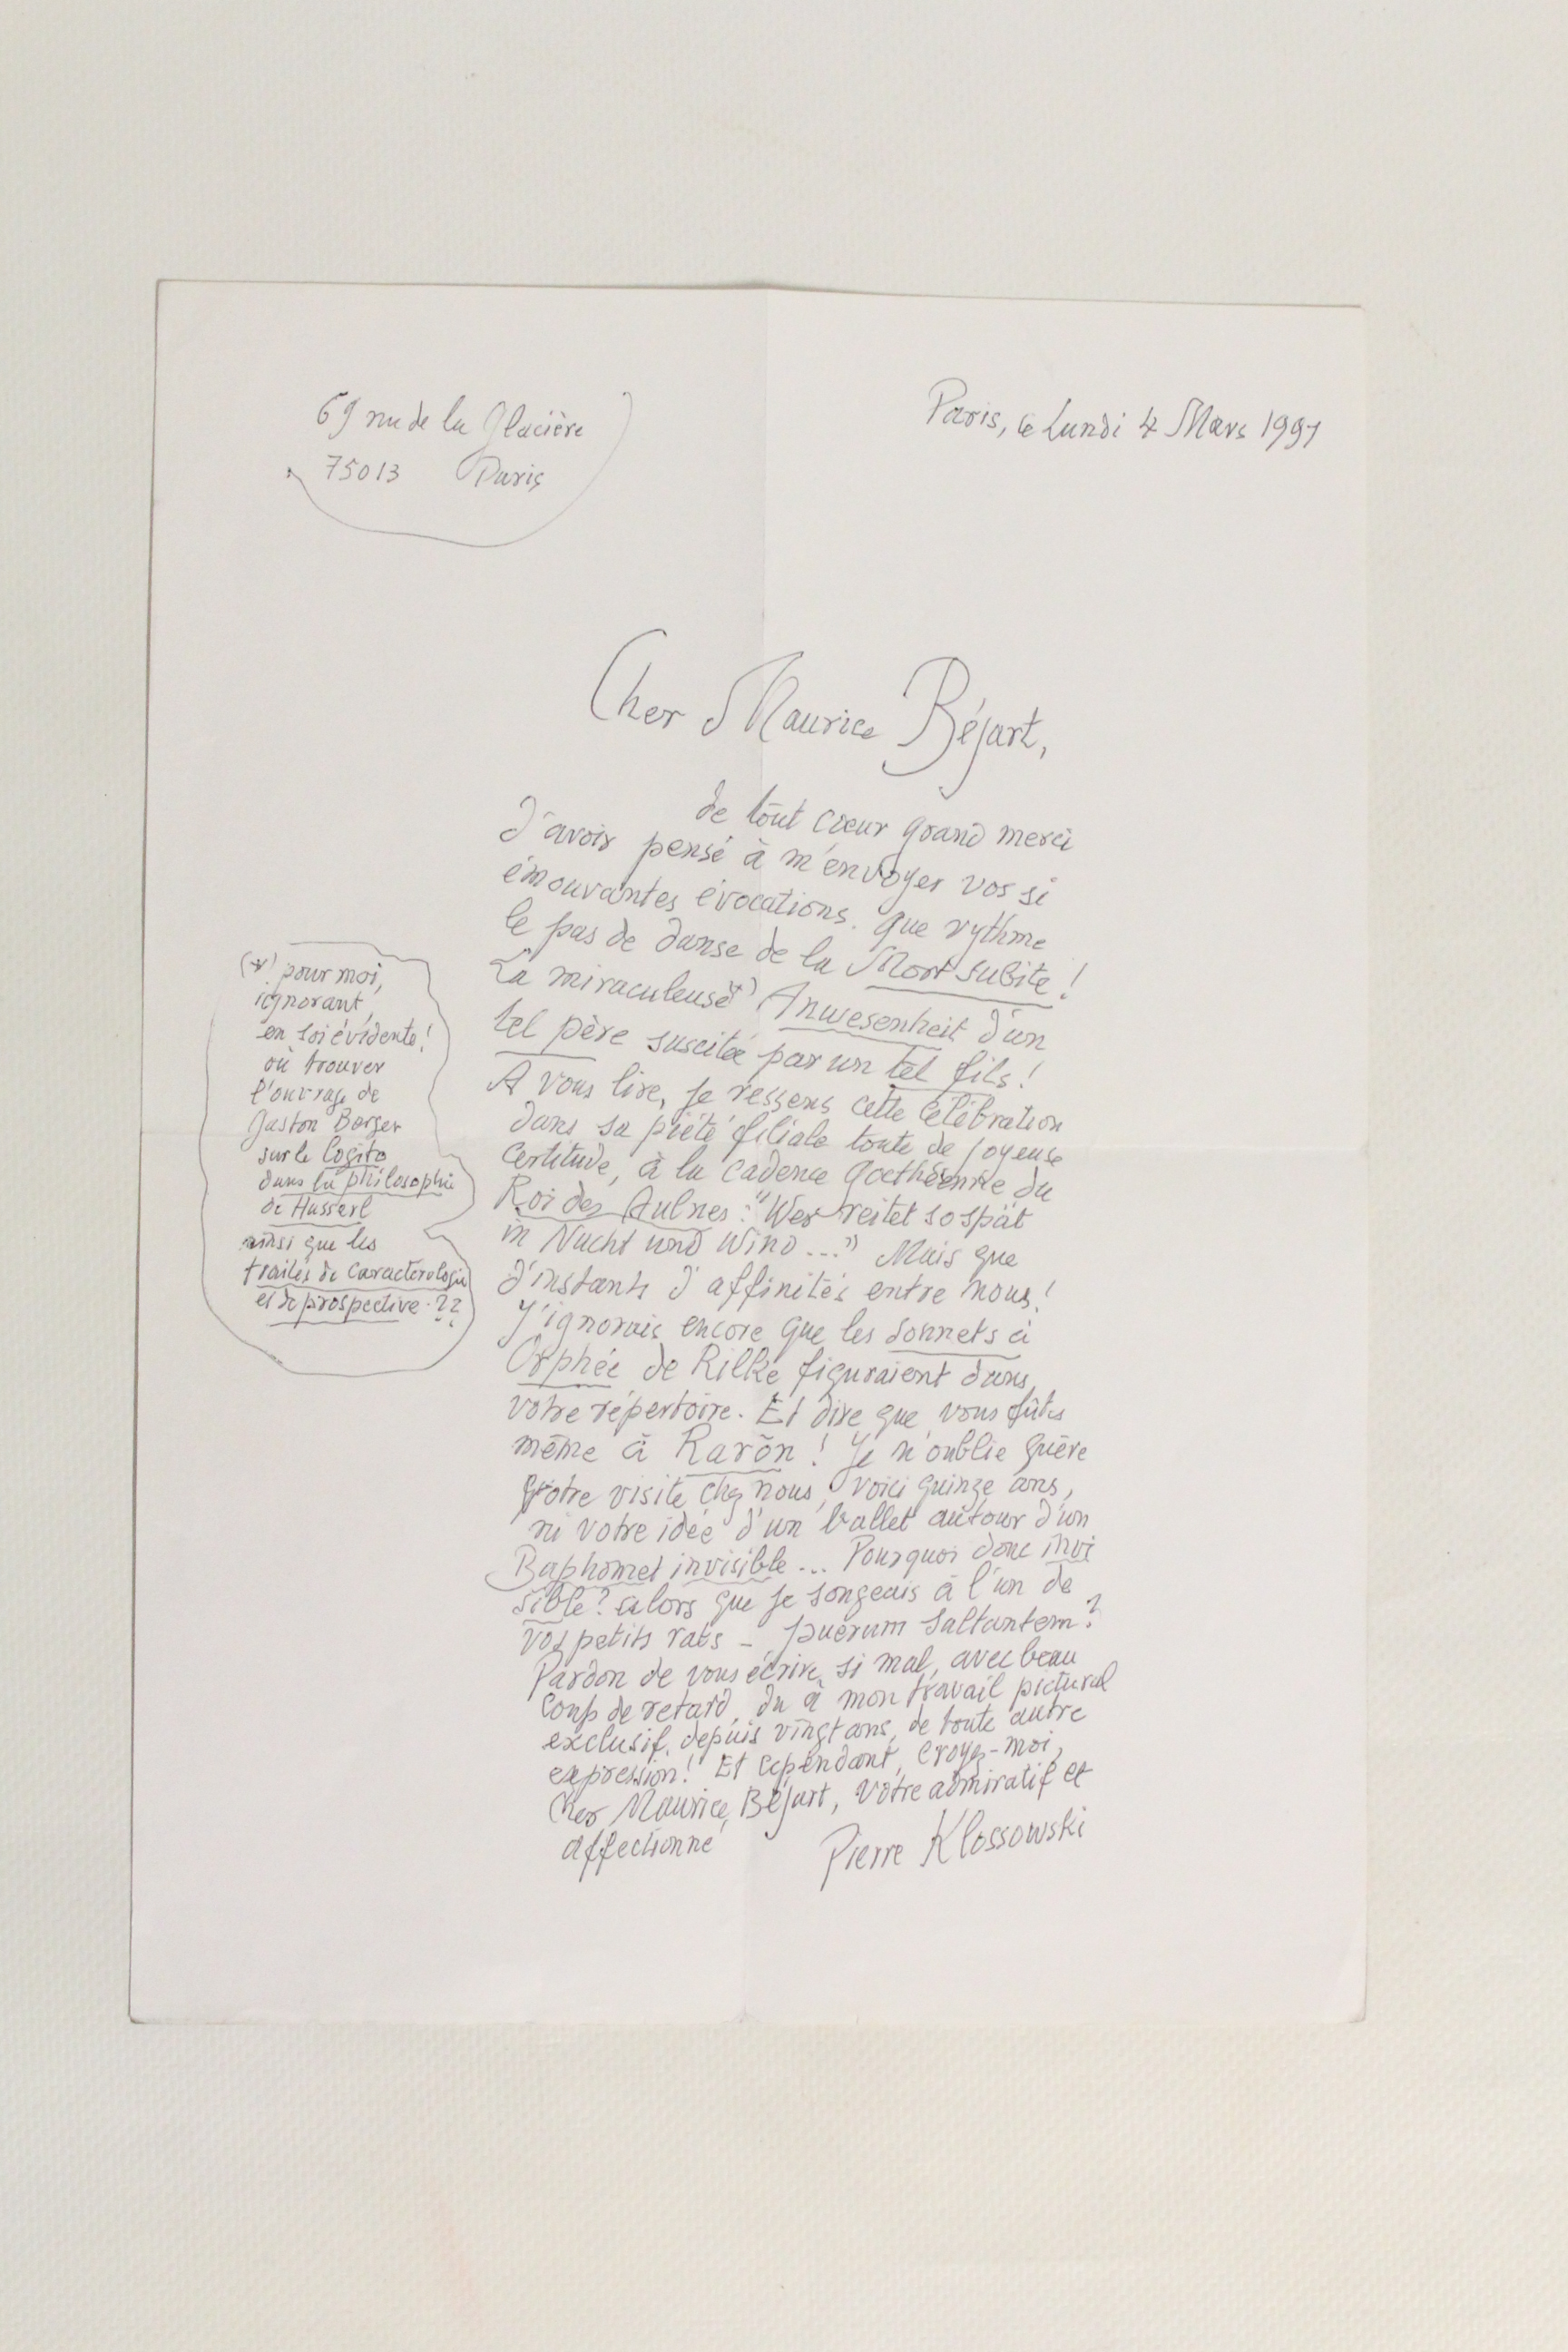 69 rue de la Glacière
75013 Paris
Paris, le Lundi 4 Mars 1991
Cher Maurice Béjart,
de tout cœur grand merci
d'avoir pensé à m'envoyer vos si
émouvantes évocations. que rythme
le pas de danse de la Mort subite !
La miraculeuse (*) Anwesenheit d'un
tel père suscitée par un tel fils !
A vous lire, je ressens cette célébration
dans sa piété filiale toute de joyeuse
certitude, à la cadence Goethéenne du
Roi des Aulnes : "Wer reitet so spät
in Nacht und Wind ..." Mais que
d'instants d'affinités entre nous !
J'ignorais encore que les Sonnets à
Orphée de Rilke figuraient dans
votre répertoire. Et dire que vous fûtes
même à Rarōn ! Je n'oublie guère
votre visite chez nous, voici quinze ans,
ni votre idée d'un ballet autour d'un
Baphomet invisible ... Pourquoi donc invi
sible ? alors que je songeais à l'un de
vos petits rats - puerum saltantem ?
Pardon de vous écrire si mal, avec beau
coup de retard, du à mon travail pictural
exclusif, depuis vingt ans, de toute autre
expression ! Et cependant, croyez-moi,
Cher Maurice Béjart, votre admiratif et
affectionné
Pierre Klossowski
(*) pour moi,
ignorant,
en soi évidente !
où trouver
l'ouvrage de
Gaston Berger
sur le Cogito
dans la philosophie
de Husserl
ainsi que les
traités de Caractérologie
et de prospective ??